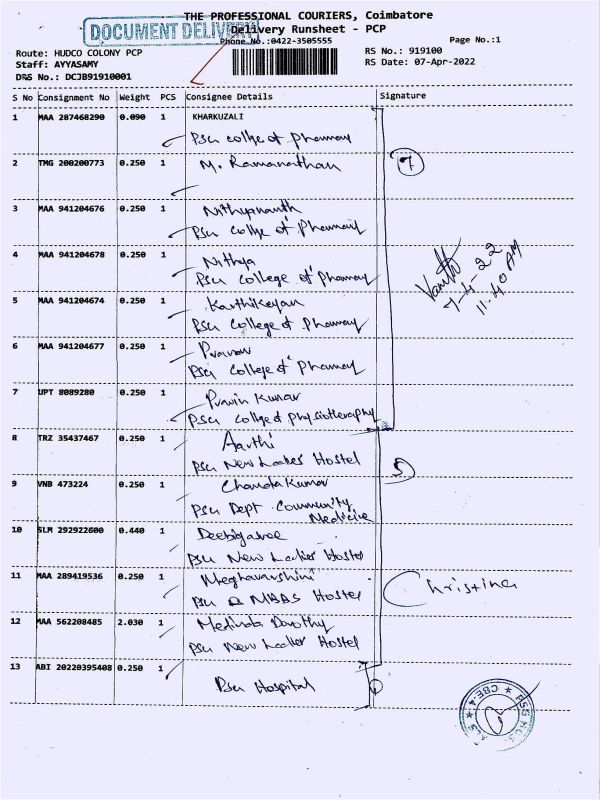 THE PROFESSIONAL COURIERS, Coimbatore
DOCUMENT DELIVERY
Delivery Runsheet - PCP
Phone No.:0422-3505555
Page No.:1
Route: HUDCO COLONY PCP
RS No.: 919100
Staff: AYYASAMY
RS Date: 07-Apr-2022
DRS No.: DCJB91910001
S No Consignment No Weight PCS Consignee Details Signature
1 MAA 287468290 0.090 1 KHARKUZALI
PSG college of pharmacy
2 TMG 200200773 0.250 1 M. Ramanathan
7
3 MAA 941204676 0.250 1 Nithyananth
PSG College of Pharmacy
4 MAA 941204678 0.250 1 Nithya
PSG College of Pharmacy
7-4-22
11.40 AM
5 MAA 941204674 0.250 1 Karthikeyan
PSG College of Pharmacy
6 MAA 941204677 0.250 1
PSG College of Pharmacy
7 UPT 8089280 0.250 1 Pravin Kumar
PSG College of physiotheraphy
8 TRZ 35437467 0.250 1 Aarthi
PSG New Ladies Hostel
5
9 VNB 473224 0.250 1 Chanda Kumar
PSG Dept Community
Medicine
10 SLM 292922600 0.440 1
PSG New Ladies Hostel
11 MAA 289419536 0.250 1 Meghavarshini
PSG MBBS Hostel
Christina
12 MAA 562208485 2.030 1
PSG New Ladies Hostel
13 ABI 20220395408 0.250 1
PSG Hospital
1
CBE-4